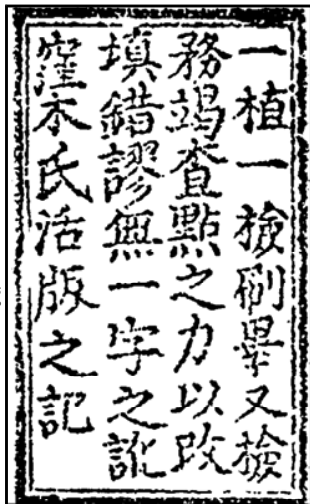 一植一撿刷畢又撿
務竭査點之力以改
填錯謬無一字之訛
窪木氏活版之記